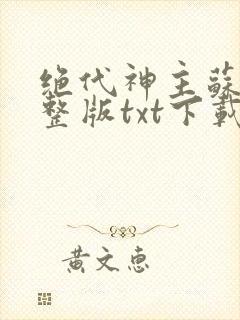 绝代神主蘇
整版txt下載
黃文惠